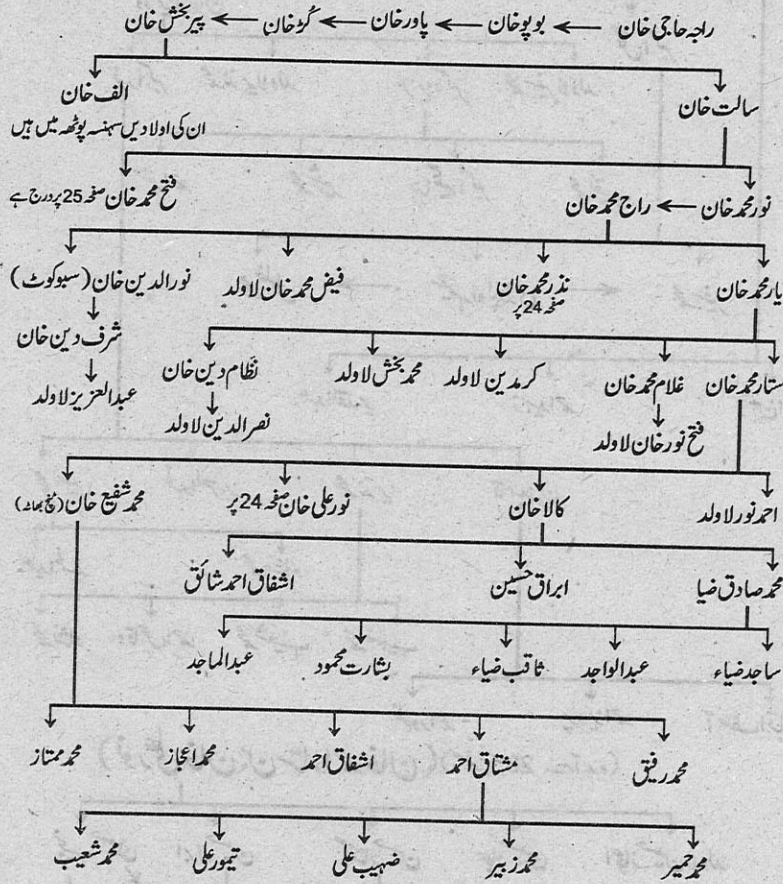 راجہ حاجی خان ← بوپوخان ← پاورخان ← کُڑخان ← پیربخش خان
سالت خان الف خان
ان کی اولادیں سہنسہ پوٹھہ میں ہیں
نور محمد خان ← راج محمد خان فتح محمد خان صفحہ 25 پر درج ہے
یار محمد خان نذر محمد خان صفحہ 24 پر فیض محمد خان لاولد نورالدین خان (سیوکوٹ)
شرف دین خان
عبدالعزیز لاولد
ستار محمد خان غلام محمد خان کرمدین لاولد محمد بخش لاولد نظام دین خان
فتح نور خان لاولد نصرالدین لاولد
احمد نور لاولد کالا خان نور علی خان صفحہ 24 پر محمد شفیع خان
محمد صادق ضیا ابراق حسین اشفاق احمد شائق
ساجد ضیاء عبدالواجد ثاقب ضیاء بشارت محمود عبدالماجد
محمد رفیق مشتاق احمد اشفاق احمد محمد اعجاز محمد ممتاز
محمد حمیر محمد زبیر ضہیب علی تیمور علی محمد شعیب